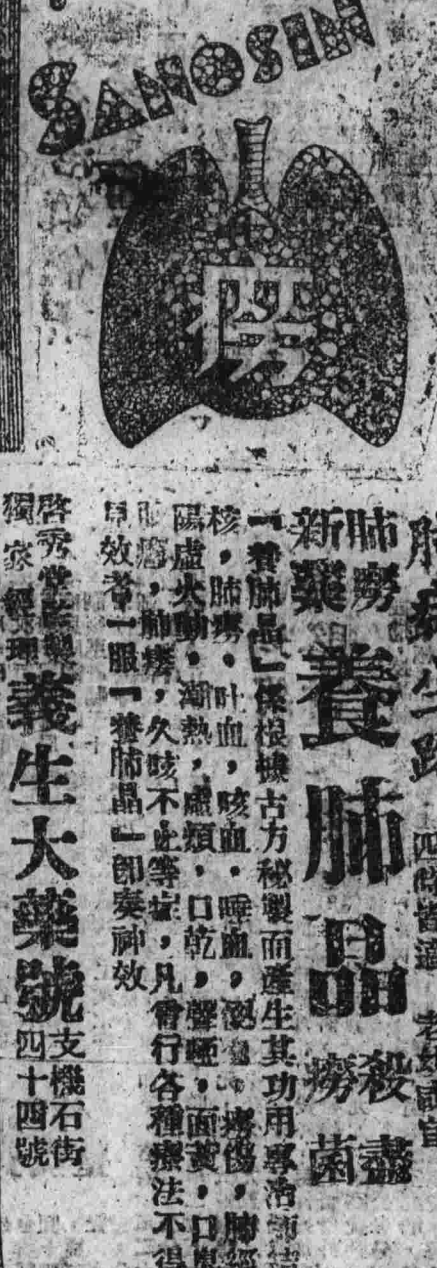 SANOSIN
癆
四時皆適 老幼咸宜
肺癆
新藥
養肺晶
殺盡
癆菌
「養肺晶」係根據古方秘製而產生其功用專治肺結
核，肺癆，吐血，咳血，唾血，癆傷，肺經
陽虛火動，潮熱，虛煩，口乾，聲啞，面黃，口
肺癰，肺痿，久咳不止等症，凡曾行各種療法不得
見效者一服「養肺晶」即奏神效
啓秀堂監製
獨家經理
義生大藥號
支機石街
四十四號